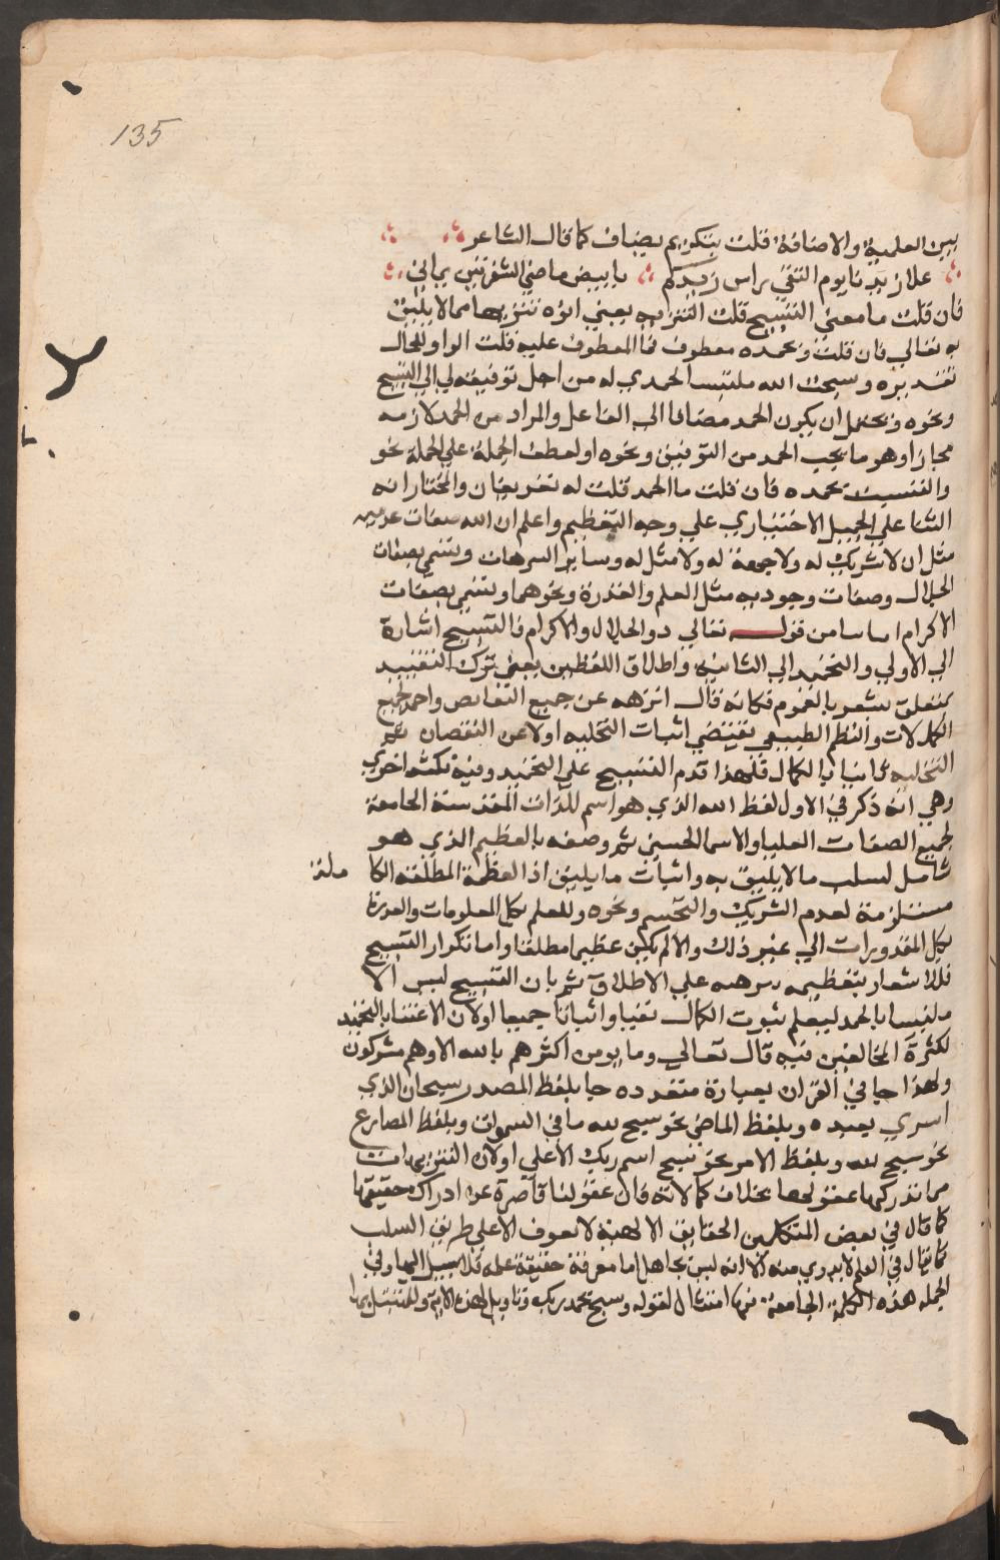 135
بين العلمية والاضافة قلت يتنكر ثم يضاف كما قال الشاعر
علا زيدنا يوم النقى راس زيدكم بابيض ماضي الشفرتين يماني
فان قلت ما معني التسبيح قلت التنزيه يعني انزه تنزيها مما لا يليق
به تعالي فان قلت وبحمده معطوف فما المعطوف عليه قلت الواو للحال
تقديره وسبحت الله ملتبسا بحمدي له من اجل توفيقه لي الي التسبيح
ونحوه ويحتمل ان يكون الحمد مضافا الي الفاعل والمراد من الحمد لازمه
مجازا وهو ما يجب الحمد من التوفيق ونحوه او لعطف الجملة علي الجملة نحو
والتبست بحمده فان قلت ما الحمد قلت له تعريفان والمختار انه
الثنا علي الجميل الاختياري علي وجه التعظيم واعلم ان لله صفات عدميه
مثل ان لا شريك له ولا جهة له ولا مثل له وساير السرهات وتسمي بصفات
الجلال وصفات وجوديه مثل العلم والقدرة ونحوهما وتسمي بصفات
الاكرام اساسا من قوله تعالي ذو الجلال والاكرام فالتسبيح اشارة
الي الاولي والتحميد الي الثانيه واطلاق اللفظين يعني ترك التقييد
بمتعلق يشعر بالعموم فكانه قال انزهه عن جميع النقايص واحمده بجميع
الكمالات والنظم الطبيعي يقتضي اثبات التخليه اولا عن النقصان ثم
التحليه ثانيا بالكمال فلهذا قدم التسبيح علي التحميد وفيه نكتة اخري
وهي انه ذكر في الاول لفظ الله الذي هو اسم للذات المقدسة الجامعة
لجميع الصفات العليا والاسما الحسني ثم وصفه بالعظيم الذي هو
شامل لسلب ما لا يليق به واثبات ما يليق اذ العظمة المطلقة الكا ملة
مستلزمة لعدم الشريك والتجسم ونحوه وللعلم بكل المعلومات والقدرة
بكل المقدورات الي غير ذلك والا لم يكن عظيما مطلقا واما تكرار التسبيح
فللاشعار بتعظيمه تنزهه علي الاطلاق ثم بان التسبيح ليس الا
ملتبسا بالحمد ليعلم ثبوت الكمال نفيا واثباتا جميعا اولان الاعتنا بالتحميد
لكثرة المخالفين فيه قال تعالي وما يومن اكثرهم بالله الا وهم مشركون
ولهذا جا في القران بعبارة متعدده جا بلفظ المصدر سبحان الذي
اسري بعبده وبلفظ الماضي نحو سبح لله ما في السموات وبلفظ المضارع
نحو يسبح لله وبلفظ الامر نحو سبح اسم ربك الاعلي اولان التنزيهات
مما تدركها عقولنا بخلاف كمالاته فان عقولنا قاصرة عن ادراك حقيقتها
كما قال في بعض المتكلمين الحقايق الالهية لا تعرف الا علي طريق السلب
كما يقال في العلم لا يدري منه الا انه ليس بجاهل اما معرفة حقيقة علمه فلا سبيل اليها وفي
الجمله هذه الكلمة الجامعة فيها امتثال لقوله وسبح بحمد ربك وتاويل لهذه الاية